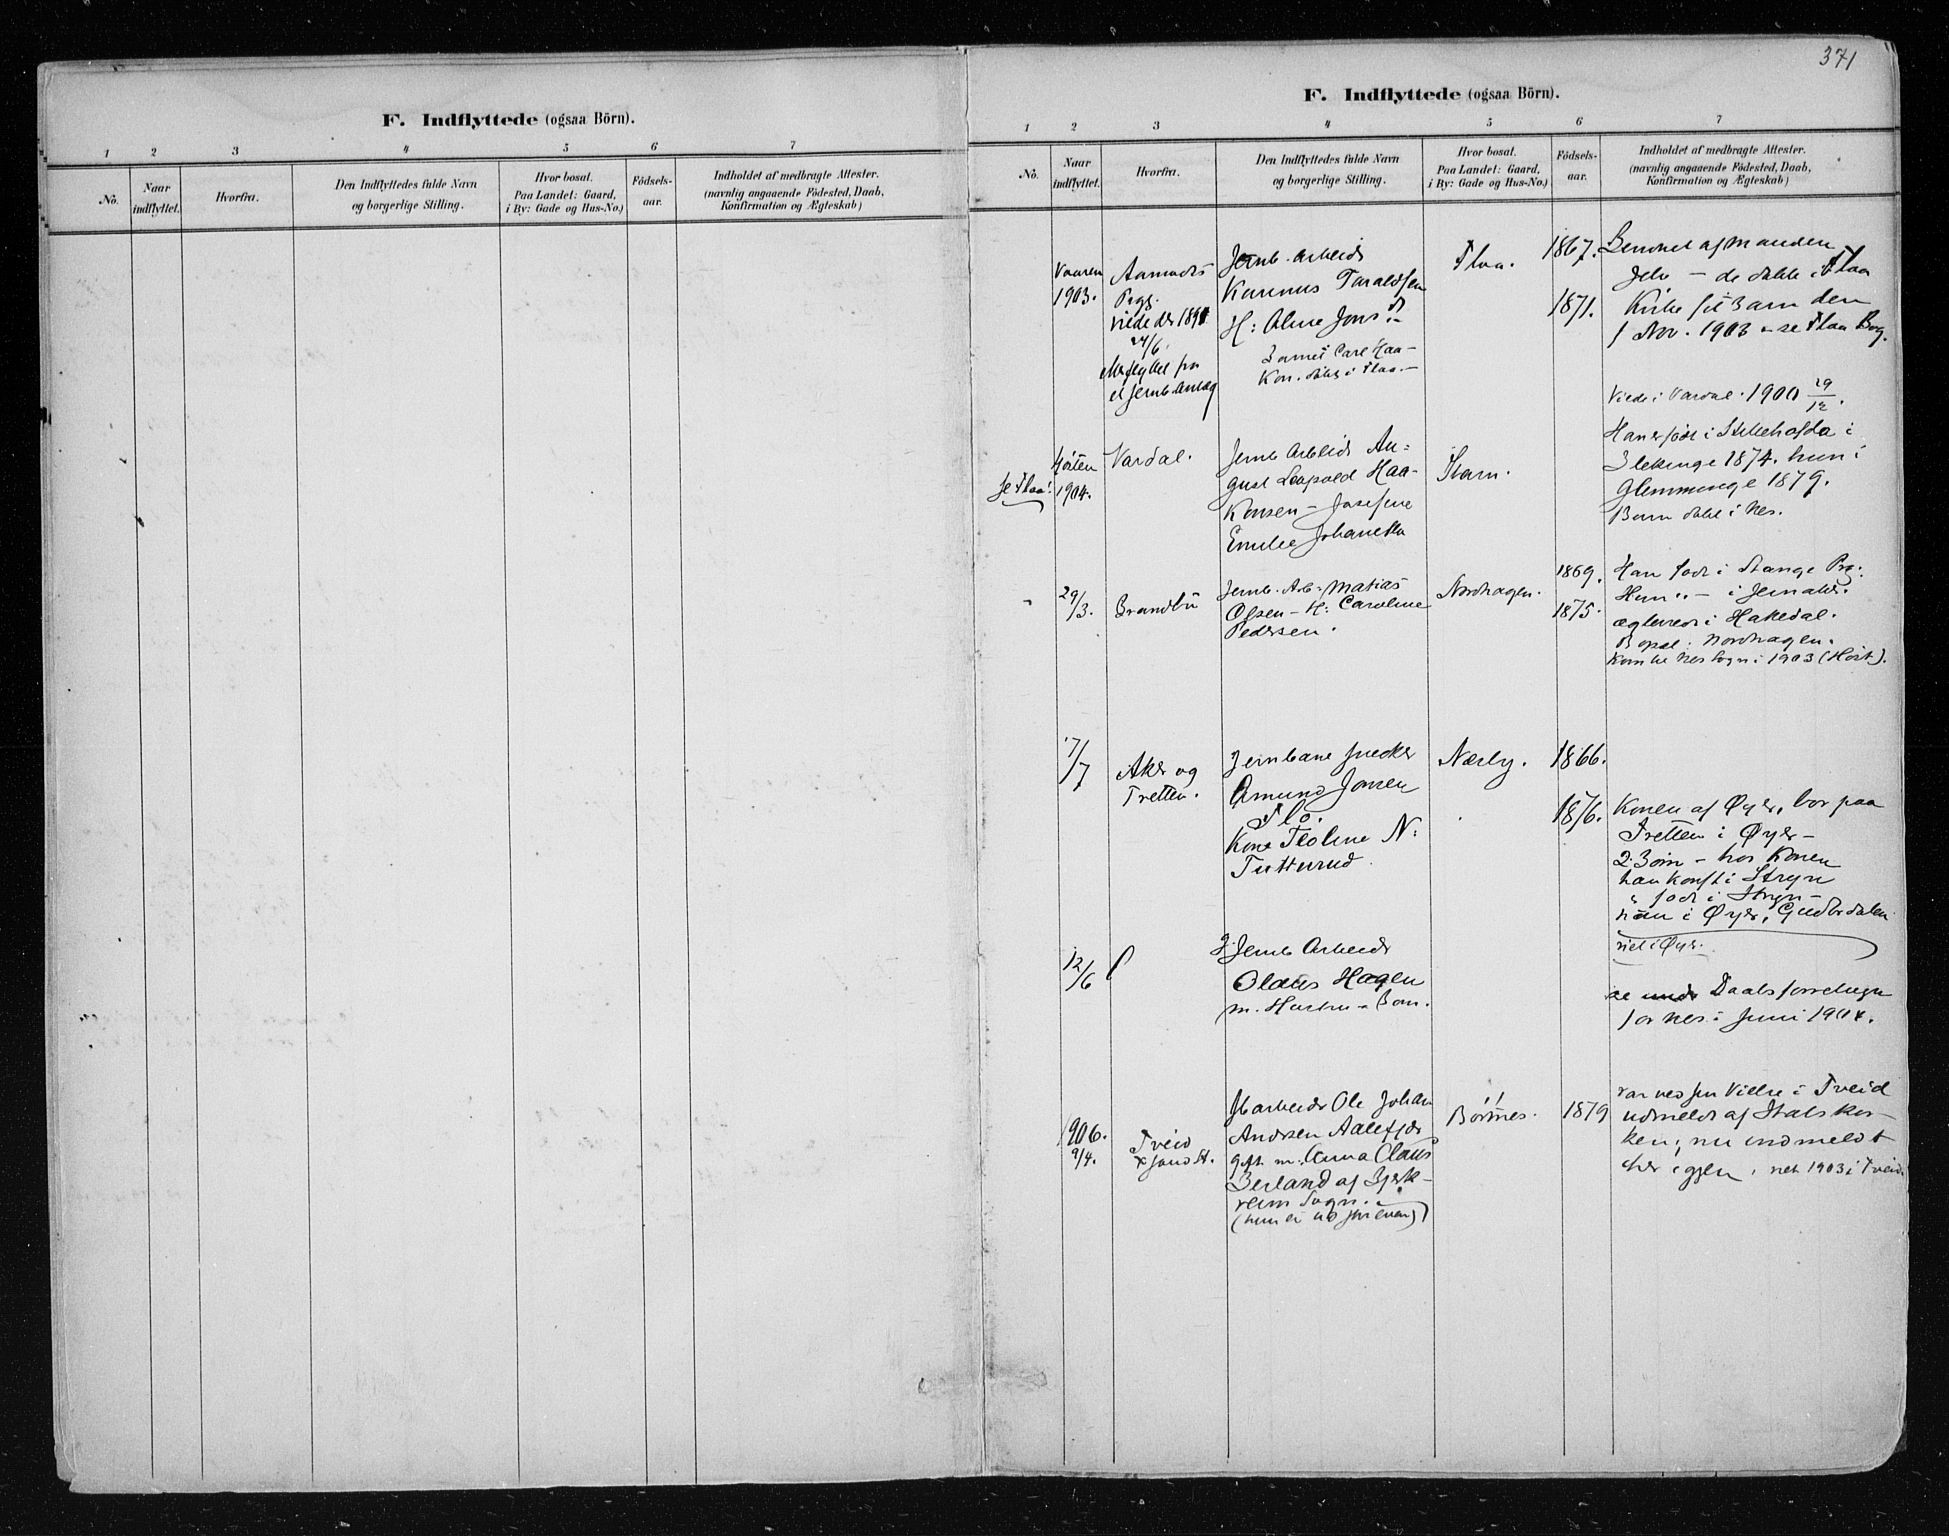 F. Indflyttede (ogsaa Börn).
1 2 3 4 5 6 7
No.
Naar
indflyttet.
Hvorfra.
Den Indflyttedes fulde Navn
og borgerlige Stilling.
Hvor bosat.
Paa Landet: Gaard,
i By: Gade og Hus-No.)
Födsels-
aar.
Indholdet af medbragte Attester.
(navnlig angaaende Födested, Daab,
Konfirmation og Ægteskab)
371
F. Indflyttede (ogsaa Börn).
1 2 3 4 5 6 7
No.
Naar
indflyttet.
Hvorfra.
Den Indflyttedes fulde Navn
og borgerlige Stilling.
Hvor bosat.
Paa Landet: Gaard,
i By: Gade og Hus-No.)
Födsels-
aar.
Indholdet af medbragte Attester.
(navnlig angaaende Födested, Daab,
Konfirmation og Ægteskab)
Vaaren
1903.
Aamodts
Prgj.
24/6
Jernb. Arbeider
Karinus Taraldsen
H: Oline Jons
Barnet Carl Haa-
kon. døbt i Flaa.
Flaa.
1867.
1871.
af Manden
selv – de døbte i Flaa
Kirke sit Barn den
1 Nov. 1903 – se Flaa Bog.
se Flaa!
Høsten
1904.
Vardal.
Jernb Arbeider Au-
gust Leopold Haa-
Konsen – Josefine
Emilie Johanetta
Viede i Vardal. 1900 29/12.
Han er født i
Blekinge 1874. hun i
Glemminge 1879.
Barn døbt i Nes.
29/3.
Brandbu
Jernb. Arb. Matias
Olsen – H: Caroline
Pedersen.
Nordhagen.
1869.
1875.
Han født i Stange Prg:
Hun " – i Jevnaker.
ægteviede i Hakedal.
Bopæl: Nordhagen.
Kom til Nes Sogn i 1903 (Høst).
7/7
Aker og
Tretten.
Jernbane snedker
Amund Jonsen
Flo.
Kone Teoline N:
Nærby.
1866.
1876.
Konen af Øyer, bor paa
Tretten i Øyer –
2 Børn – hos Konen
han konf. i Stryn
" født i Stryn –
hun i Øyer, Gudbrdalen
viet i Øyer.
12/6
Jernb Arbeider
Olaus Hagen
m. Hustru – Barn.
se under Daabsforretnign
for Nes i Juni 1904.
1906.
9/4.
Tveid
Jb arbeider Ole Johan
Andersen
gift m. Anna Claus
Berland af Bjerk-
reim Sogn.
Börtnes.
1879
i Tveid
udmeldt af Statskir-
ken; nu indmeldt
her igjen, viet 1903 i Tveid